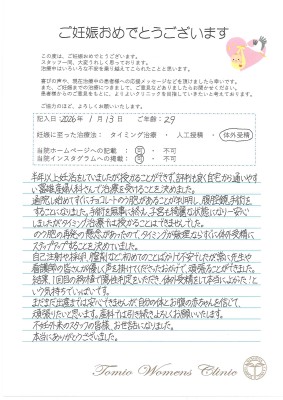 ご妊娠おめでとうございます
この度は、ご妊娠おめでとうございます。
スタッフ一同、大変うれしく思っております。
治療中はいろいろな不安を乗り越えてこられたことと思います。
喜びの声や、現在治療中の患者様への応援メッセージなどを頂けましたら幸いです。
また、ご妊娠までの治療につきまして、ご意見などありましたらお聞かせください。
患者様からのご意見をもとに、よりよいクリニックを目指していきたいと考えております。
ご協力のほど、よろしくお願いいたします。
記入日：2026年 1月13日 ご年齢：29
妊娠に至った治療法： タイミング治療 ・ 人工授精 ・ 体外受精
当院ホームページへの記載： 可 ・ 不可
当院インスタグラムへの掲載： 可 ・ 不可
半年以上妊活をしていましたが授かることができず、評判も良く自宅から通いやすい
富雄産婦人科さんで治療を受けることを決めました。
通院し始めてすぐにチョコレートのう胞があることが判明し、腹腔鏡手術を
することになりました。手術を無事に終え、子宮も綺麗な状態になり一安心
しましたがタイミング治療では授かることはできませんでした。
のう胞の再発の懸念があったので、タイミングから無理せずに体外受精に
ステップアップすることを決めていました。
自己注射や採卵、麻酔など初めてのことばかりで不安でしたが常に先生や
看護師の皆さんが優しく声を掛けてくださったおかげで、頑張ることができました。
結果、1回目の移植で陽性判定をいただき、体外受精をして本当によかった！と
いう気持ちでいっぱいです。
まだまだ出産までは安心できませんが、自分の体とお腹の赤ちゃんを信じて、
頑張りたいと思います。産科では引き続きよろしくお願いいたします。
不妊外来のスタッフの皆様、お世話になりました。
本当にありがとうございました。
Tomio Womens Clinic